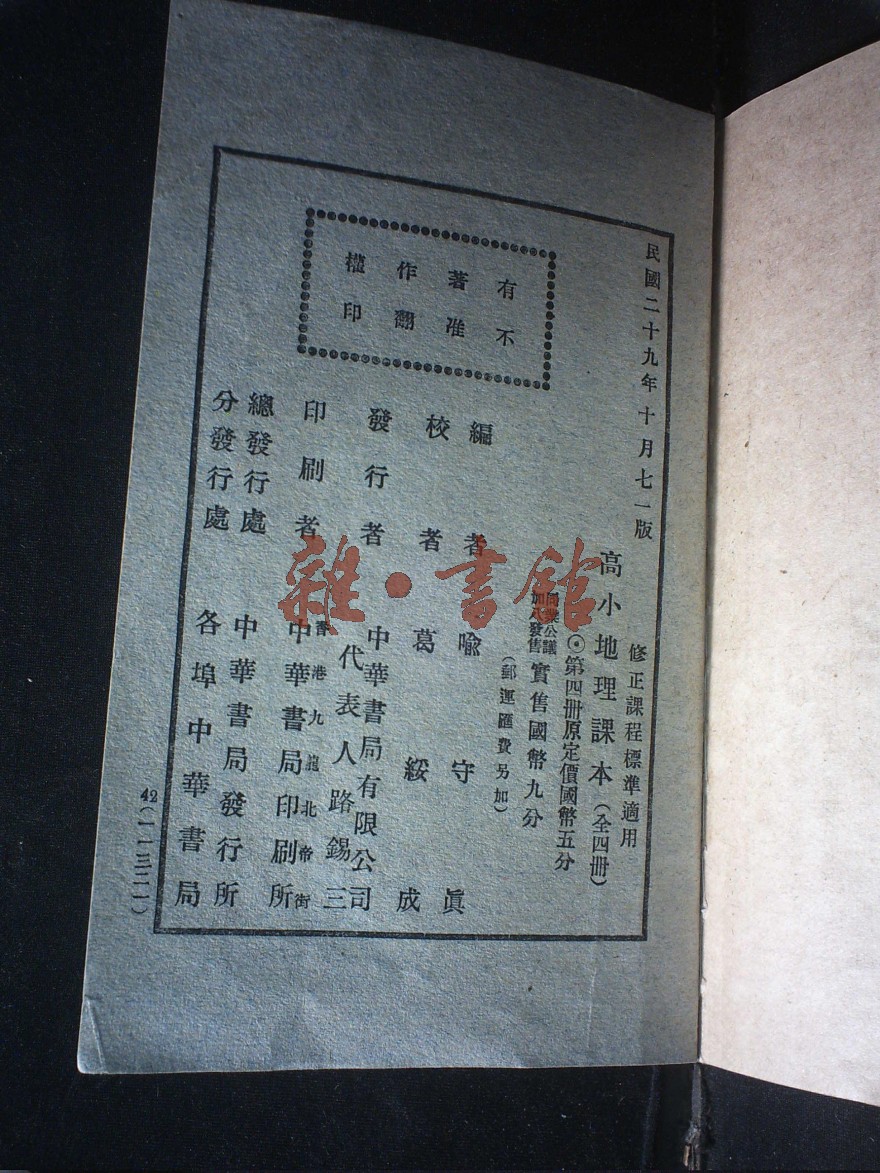 民國二十九年十月七一版
修正課程標準適用
高小地理課本（全四冊）
⊙第四冊原定價國幣五分
同業公議
加八發售
實售國幣九分
（郵運匯費另加）
有不
著准
作翻
權印
編者 喩守眞
校者 葛綏成
發行者 中華書局有限公司
代表人路錫三
印刷者 香港九龍北帝街
中華書局印刷所
總發行處 中華書局發行所
分發行處 各埠中華書局
42（一一三二一）
雜·書館